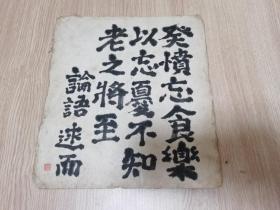 癸憤忘食樂
以忘憂不知
老之將至
論語 述而